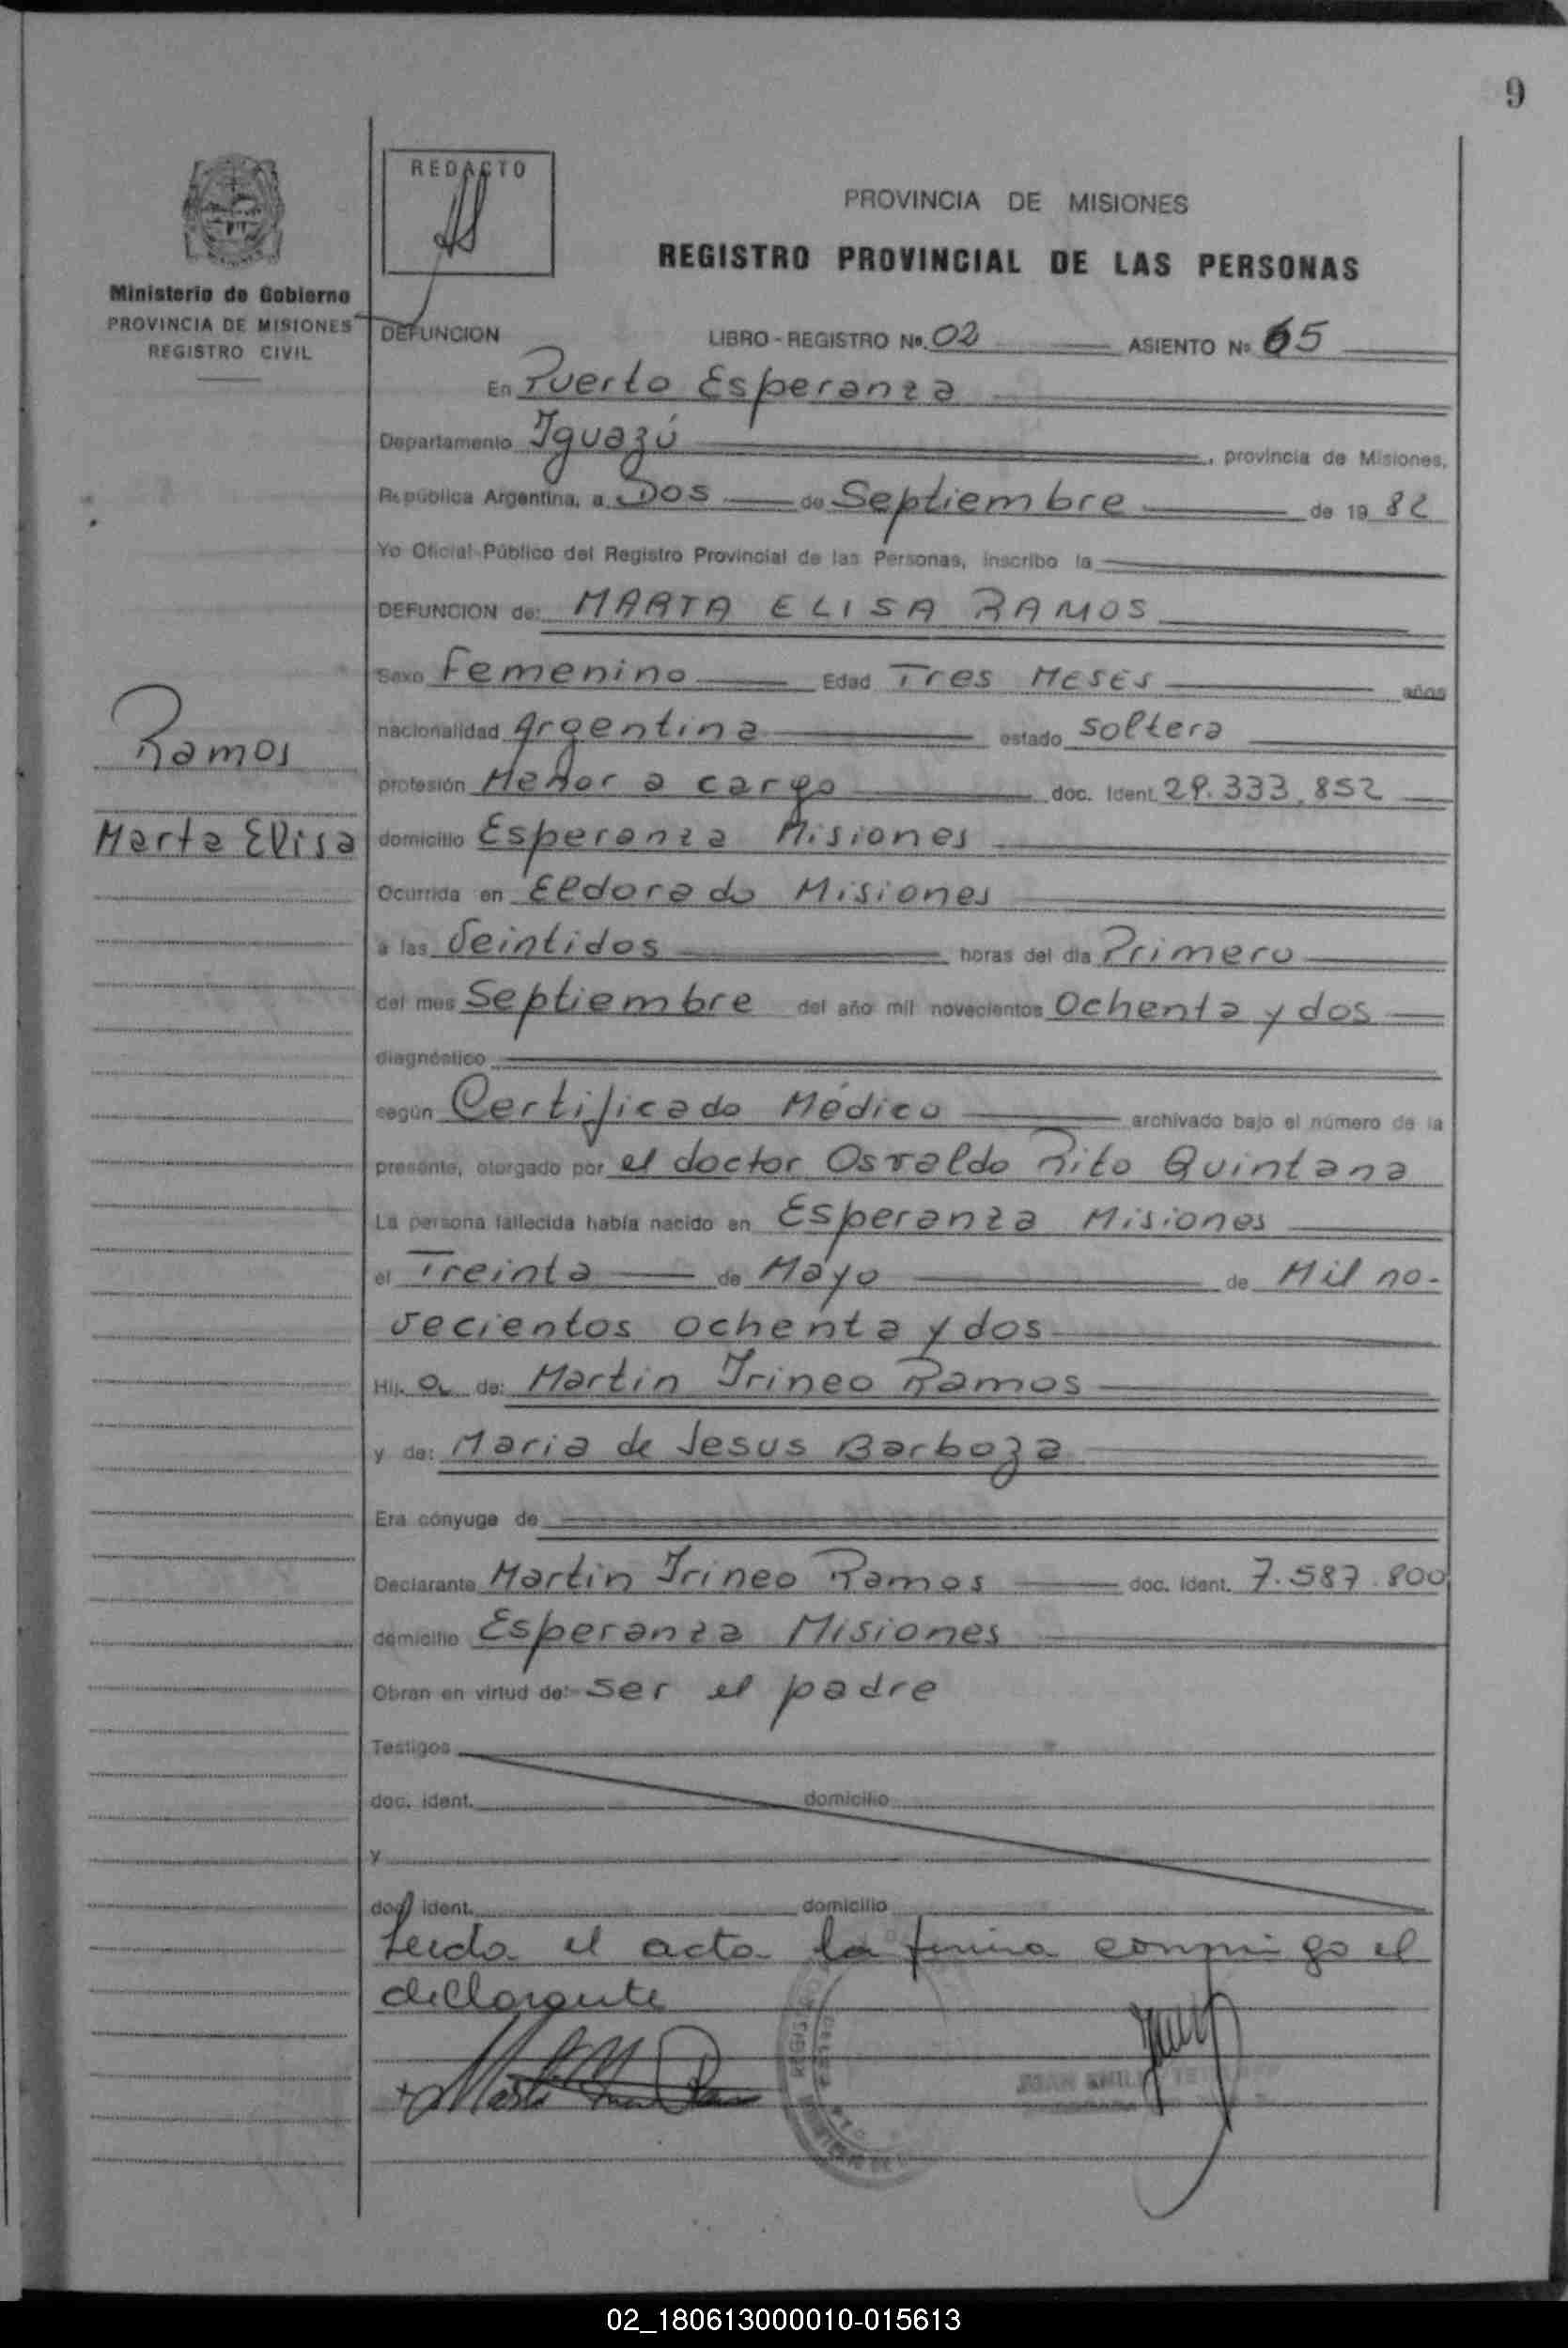 9
REDACTO
PROVINCIA DE MISIONES
REGISTRO PROVINCIAL DE LAS PERSONAS
Ministerio de Gobierno
PROVINCIA DE MISIONES
REGISTRO CIVIL
DEFUNCION LIBRO - REGISTRO Nº. 02 ASIENTO Nº 65
En Puerto Esperanza
Departamento Iguazú, provincia de Misiones,
República Argentina, a Dos de Septiembre de 19 82
Yo Oficial Público del Registro Provincial de las Personas, inscribo la
DEFUNCION de: MARTA ELISA RAMOS
Sexo Femenino Edad Tres Meses años
nacionalidad Argentina estado soltera
profesión Menor a cargo doc. Ident. 29.333.852
domicilio Esperanza Misiones
Ocurrida en Eldorado Misiones
a las Veintidos horas del día Primero
del mes Septiembre del año mil novecientos Ochenta y dos
diagnóstico
según Certificado Médico archivado bajo el número de la
presente, otorgado por el doctor Osvaldo Rito Quintana
La persona fallecida había nacido en Esperanza Misiones
el Treinta de Mayo de Mil no-
vecientos ochenta y dos
Hij a de: Martin Irineo Ramos
y de: Maria de Jesus Barboza
Era cónyuge de
Declarante Martin Irineo Ramos doc. Ident. 7.587.800
domicilio Esperanza Misiones
Obran en virtud de: ser el padre
Testigos
doc. ident. domicilio
y
doc. ident. domicilio
Leida el acta la firma conmigo el
declarante
Ramos
Marta Elisa
02_180613000010-015613